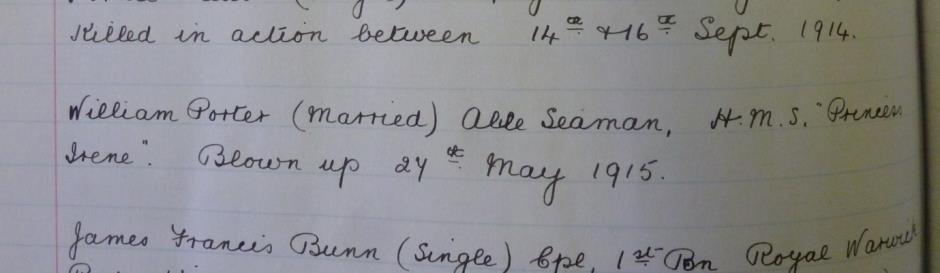 Killed in action between 14th & 16th Sept. 1914.
William Porter (Married) Able Seaman, H.M.S. "Princess
Irene". Blown up 27th May 1915.
James Francis Bunn (Single) Cpl, 1st Bn Royal Warwick